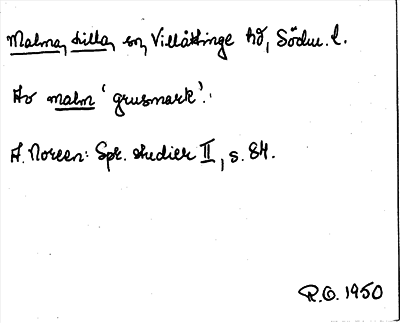 Malma, lilla, sn, Villåttinge hd, Södm. l.
Av malm 'grusmark'.
A. Noreen: Spr. studier II, s. 84.
R.O. 1950